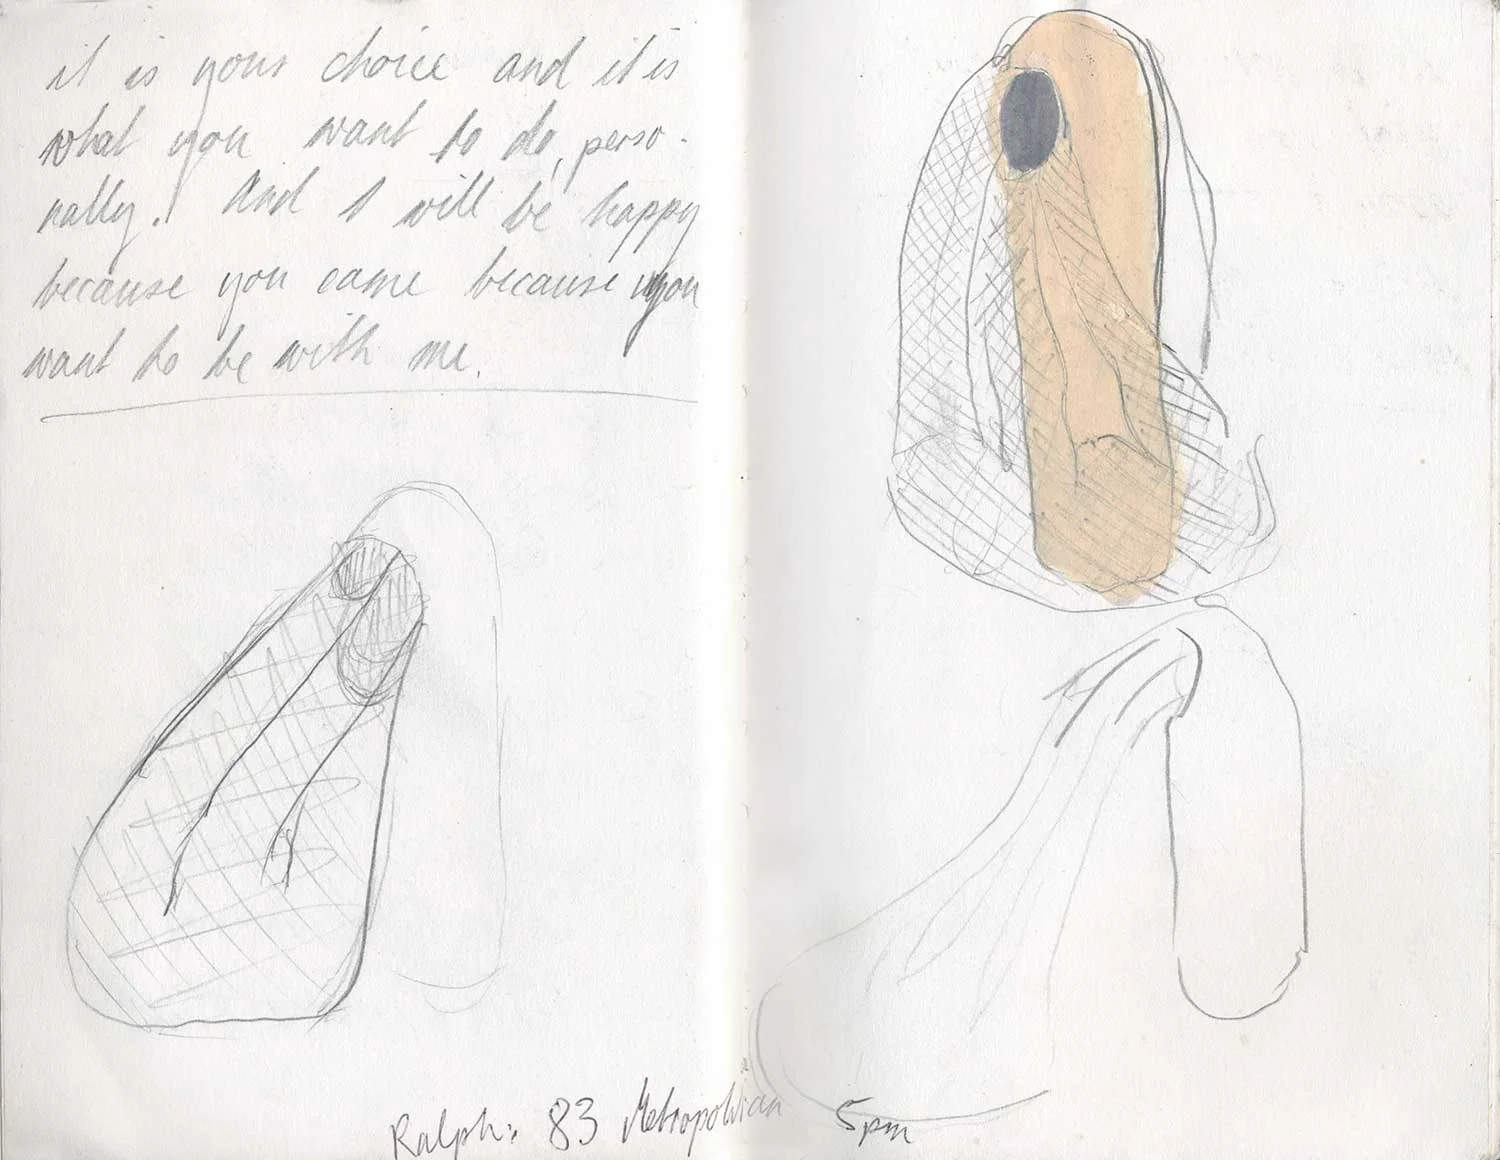 it is your choice and it is
what you want to do, perso-
nally. And I will be happy
because you came because you
want to be with me.
Ralph: 83 Metropolitan 5pm